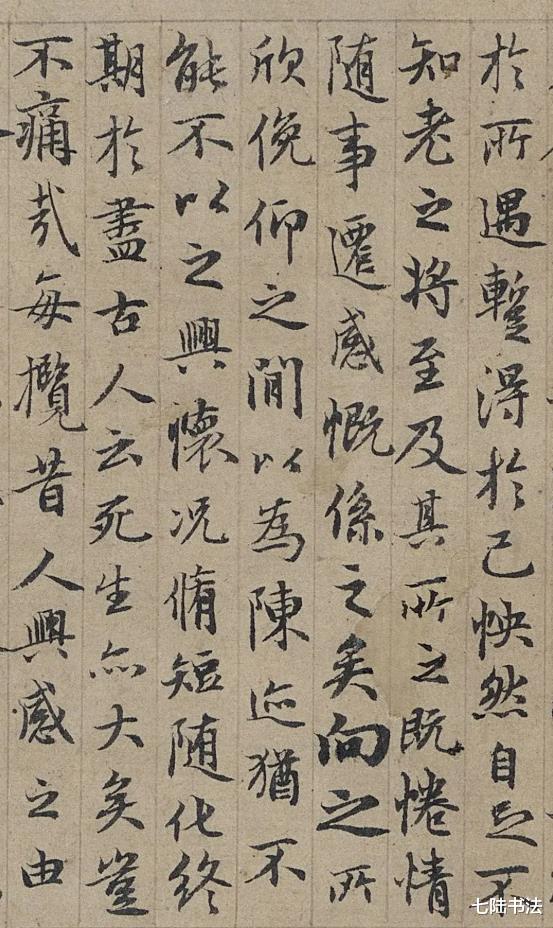 於所遇蹔得於己怏然自足不
知老之将至及其所之既惓情
随事遷感慨係之矣向之所
欣俛仰之閒以為陳迹猶不
能不以之興懷况脩短随化終
期於盡古人云死生亦大矣豈
不痛哉每攬昔人興感之由
七陆书法